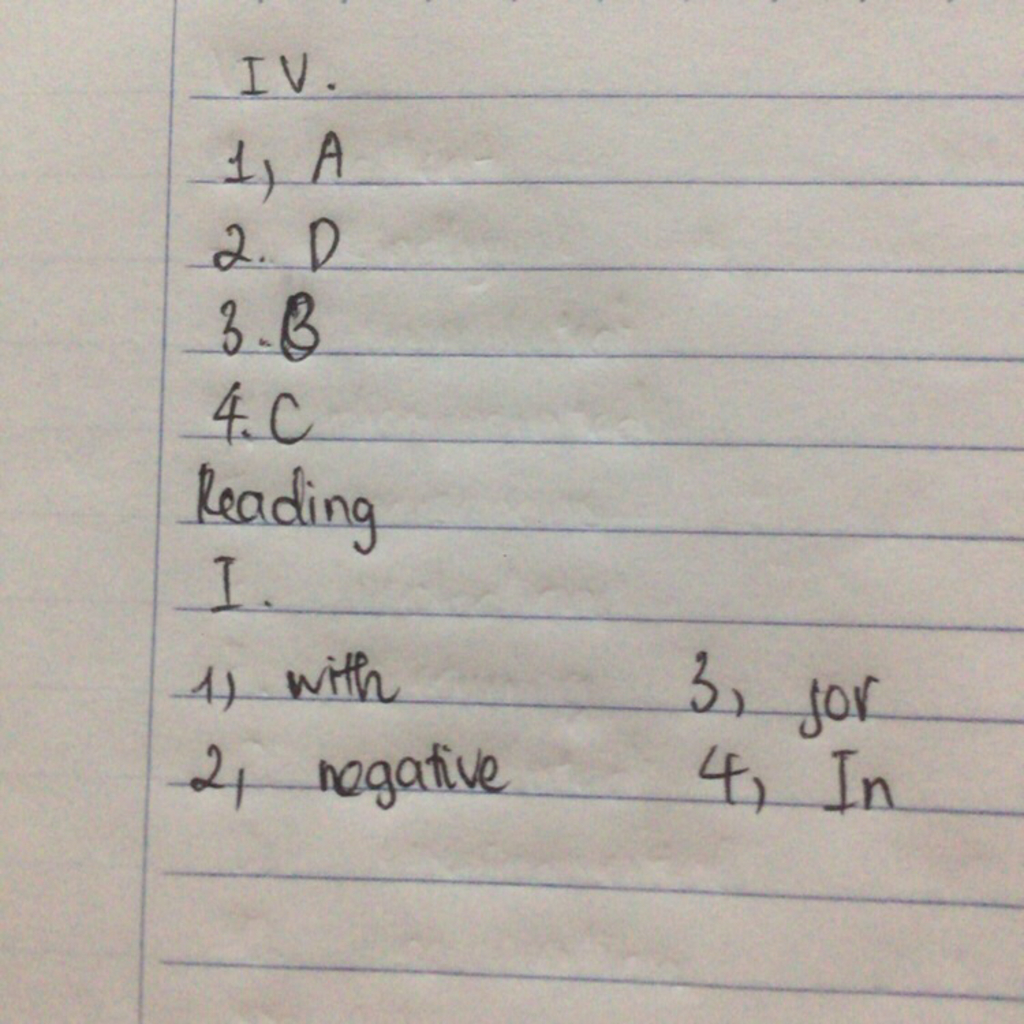 IV.
1, A
2. D
3. B
4. C
Reading
I.
1) with 3, for
2, negative 4, In